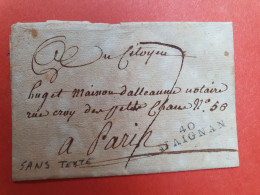 au Citoyen
huget Maison d'alleaume notaire
rue croix des petits Champs N.° 50
40
S AIGNAN
a Paris
SANS TEXTE